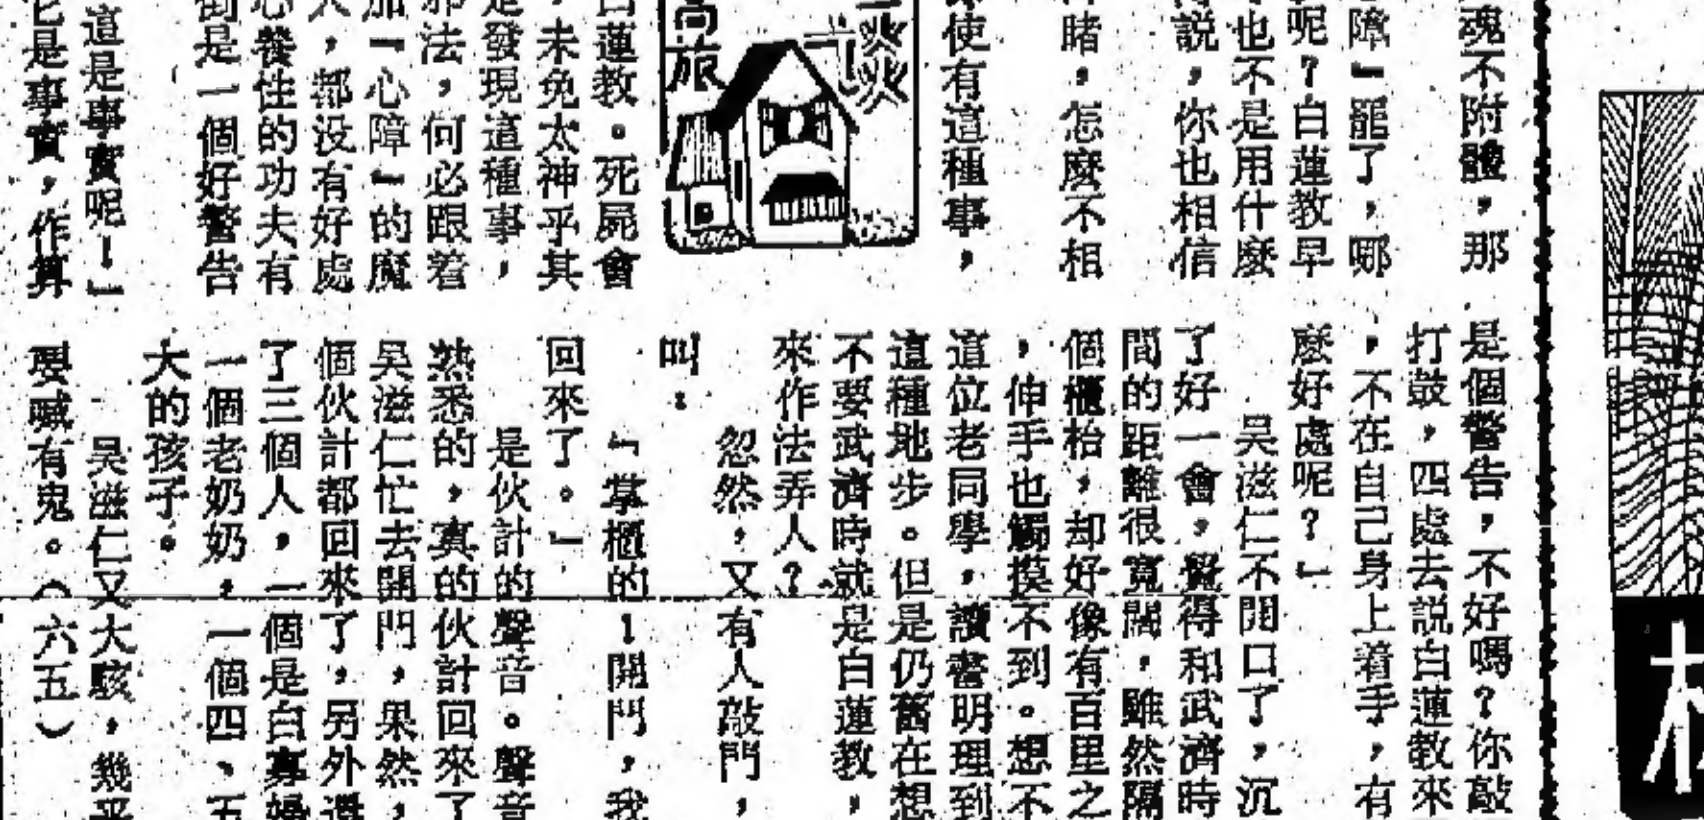 魂不附體，那
障』罷了，哪
呢？白蓮教早
也不是用什麼
說，你也相信
睹，怎麼不相
使有這種事，
談
高旅
白蓮教。死屍會
，未免太神乎其
是發現這種事，
邪法，何必跟着
加『心障』的魔
人，都没有好處
心養性的功夫有
倒是一個好警告
這是事實呢！」
它是事實，作算
是個警告，不好嗎？你敲
打鼓，四處去説白蓮教來
，不在自己身上着手，有
麼好處呢？」
吳滋仁不開口了，沉
了好一會，覺得和武濟時
間的距離很寬闊，雖然隔
個櫃枱，却好像有百里之
，伸手也觸摸不到。想不
這位老同學，讀書明理到
這種地步。但是仍舊在想
不要武濟時就是白蓮教，
來作法弄人？
忽然，又有人敲門，
叫：
「掌櫃的！開門，我
回來了。」
是伙計的聲音。聲音
熟悉的，真的伙計回來了
吳滋仁忙去開門，果然，
個伙計都回來了，另外還
了三個人，一個是白寡婦
一個老奶奶，一個四、五
大的孩子。
吳滋仁又大駭，幾乎
要喊有鬼。（六五）